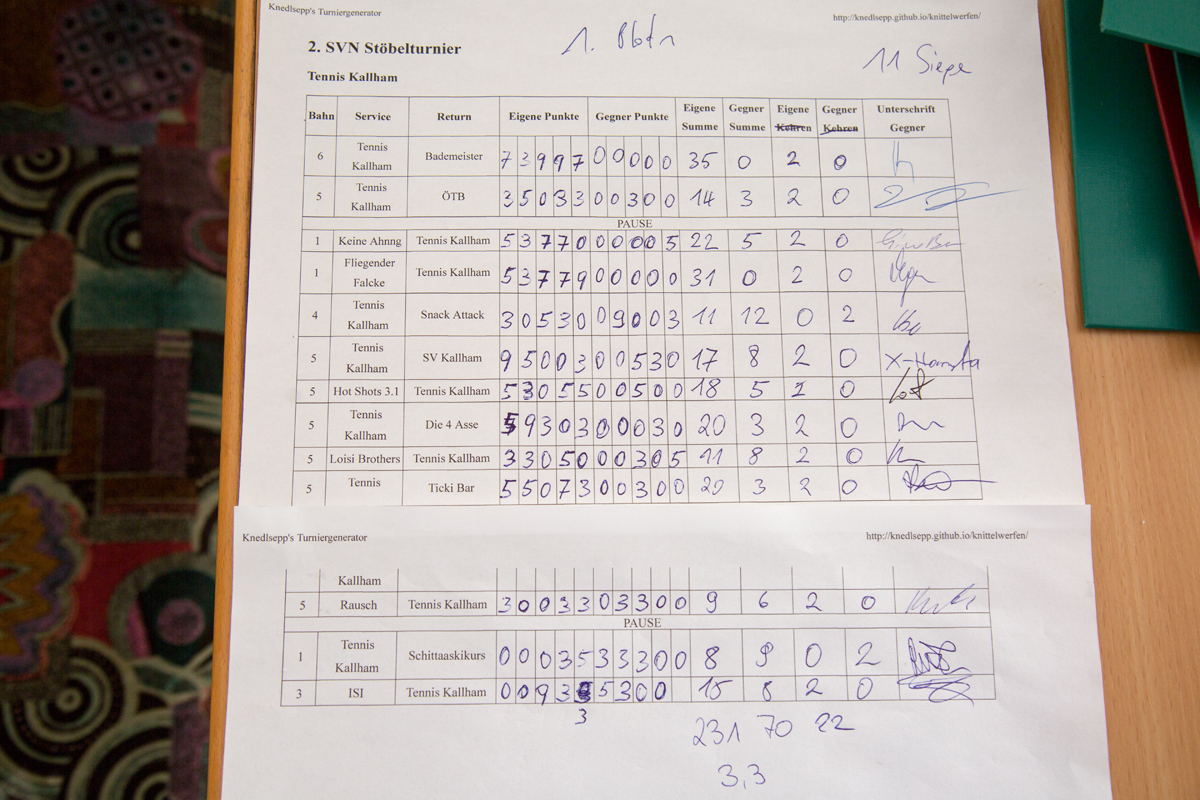 Knedlsepp's Turniergenerator http://knedlsepp.github.io/knittelwerfen/
2. SVN Stöbelturnier
11 Siege
Tennis Kallham
Bahn Service Return Eigene Punkte Gegner Punkte Eigene Summe Gegner Summe Eigene Kehren Gegner Kehren Unterschrift Gegner
6 Tennis Kallham Bademeister 7 3 9 9 7 0 0 0 0 0 35 0 2 0
5 Tennis Kallham ÖTB 3 5 0 3 3 0 0 3 0 0 14 3 2 0
PAUSE
1 Keine Ahnng Tennis Kallham 5 3 7 7 0 0 0 0 0 5 22 5 2 0
1 Fliegender Falcke Tennis Kallham 5 3 7 7 9 0 0 0 0 0 31 0 2 0
4 Tennis Kallham Snack Attack 3 0 5 3 0 0 9 0 0 3 11 12 0 2
5 Tennis Kallham SV Kallham 9 5 0 0 3 0 0 5 3 0 17 8 2 0
5 Hot Shots 3.1 Tennis Kallham 5 3 0 5 5 0 0 5 0 0 18 5 2 0
5 Tennis Kallham Die 4 Asse 5 9 3 0 3 0 0 0 3 0 20 3 2 0
5 Loisi Brothers Tennis Kallham 3 3 0 5 0 0 0 3 0 5 11 8 2 0
5 Tennis Ticki Bar 5 5 0 7 3 0 0 3 0 0 20 3 2 0
Knedlsepp's Turniergenerator http://knedlsepp.github.io/knittelwerfen/
Kallham
5 Rausch Tennis Kallham 3 0 0 3 3 0 3 3 0 0 9 6 2 0
PAUSE
1 Tennis Kallham Schittaaskikurs 0 0 0 3 5 3 3 3 0 0 8 9 0 2
3 ISI Tennis Kallham 0 0 9 3 5 3 0 0 15 8 2 0
3
231 70 22
3,3